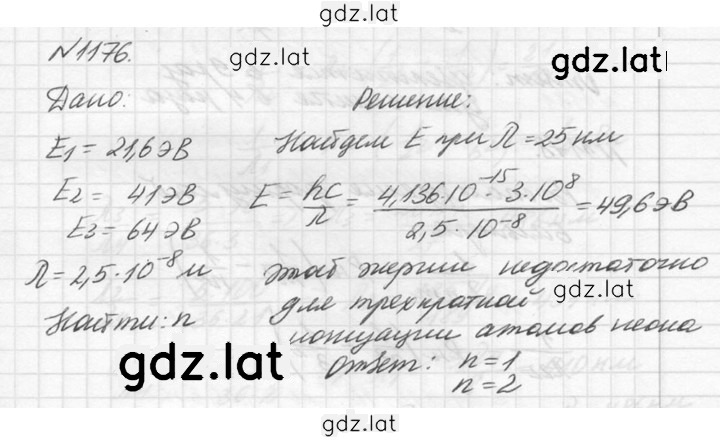 gdz.lat
N1176.
gdz.lat
gdz.lat
Дано:
Решение:
E1 = 21,6 эВ
Найдем E при Л = 25 нм
E2 = 41 эВ
E = hc/λ = 4,136·10^-15·3·10^8 / 2,5·10^-8 = 49,6 эВ
E3 = 64 эВ
λ = 2,5·10^-8 м
этой энергии недостаточно
gdz.lat
Найти: n
для трехкратной
ионизации атомов неона
gdz.lat
Ответ: n = 1
n = 2
gdz.lat